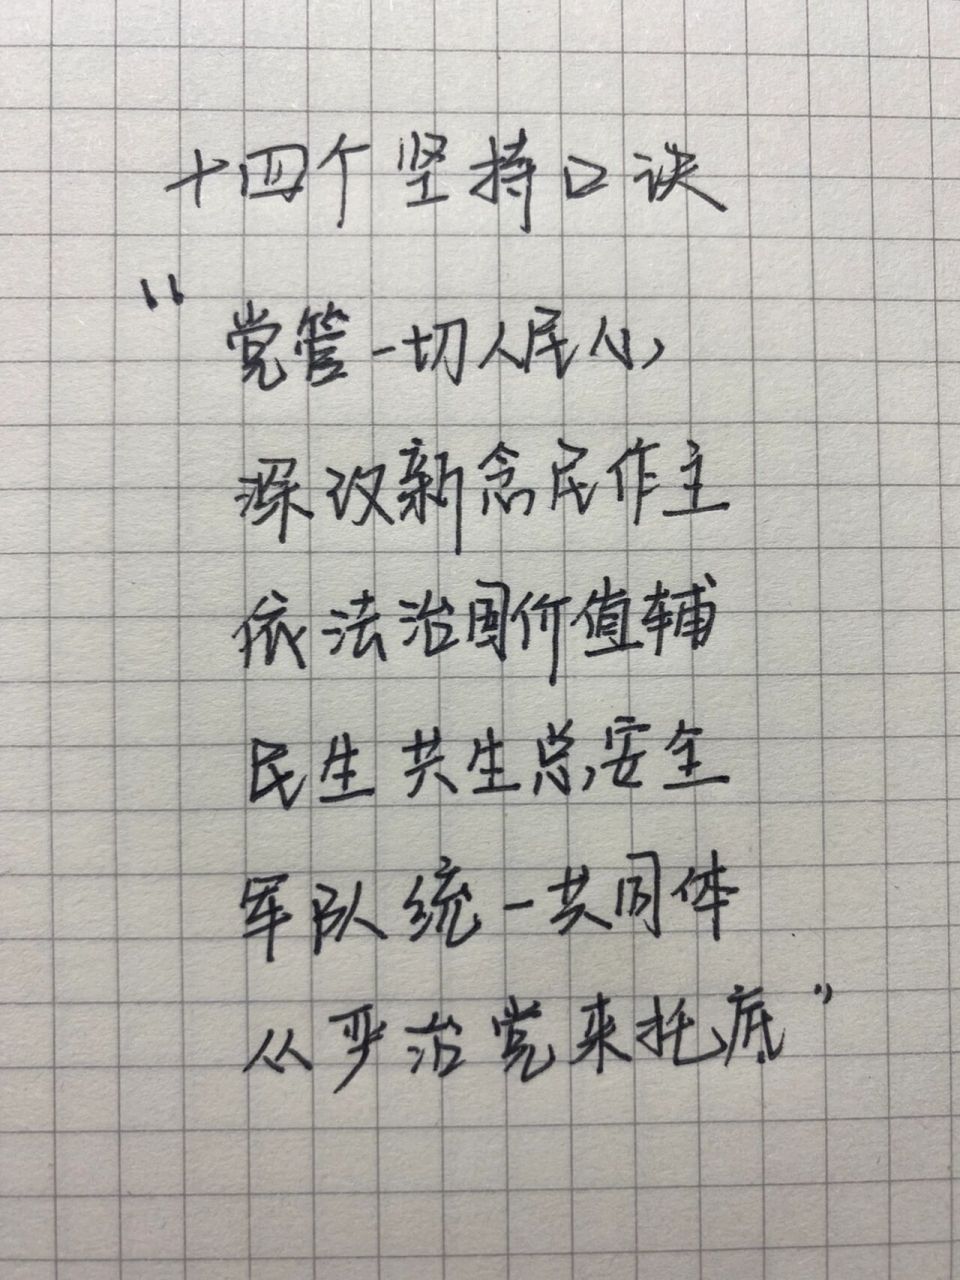 十四个坚持口诀
“党管一切人民心
深改新念民作主
依法治国价值辅
民生共生总安全
军队统一共同体
从严治党来托底”